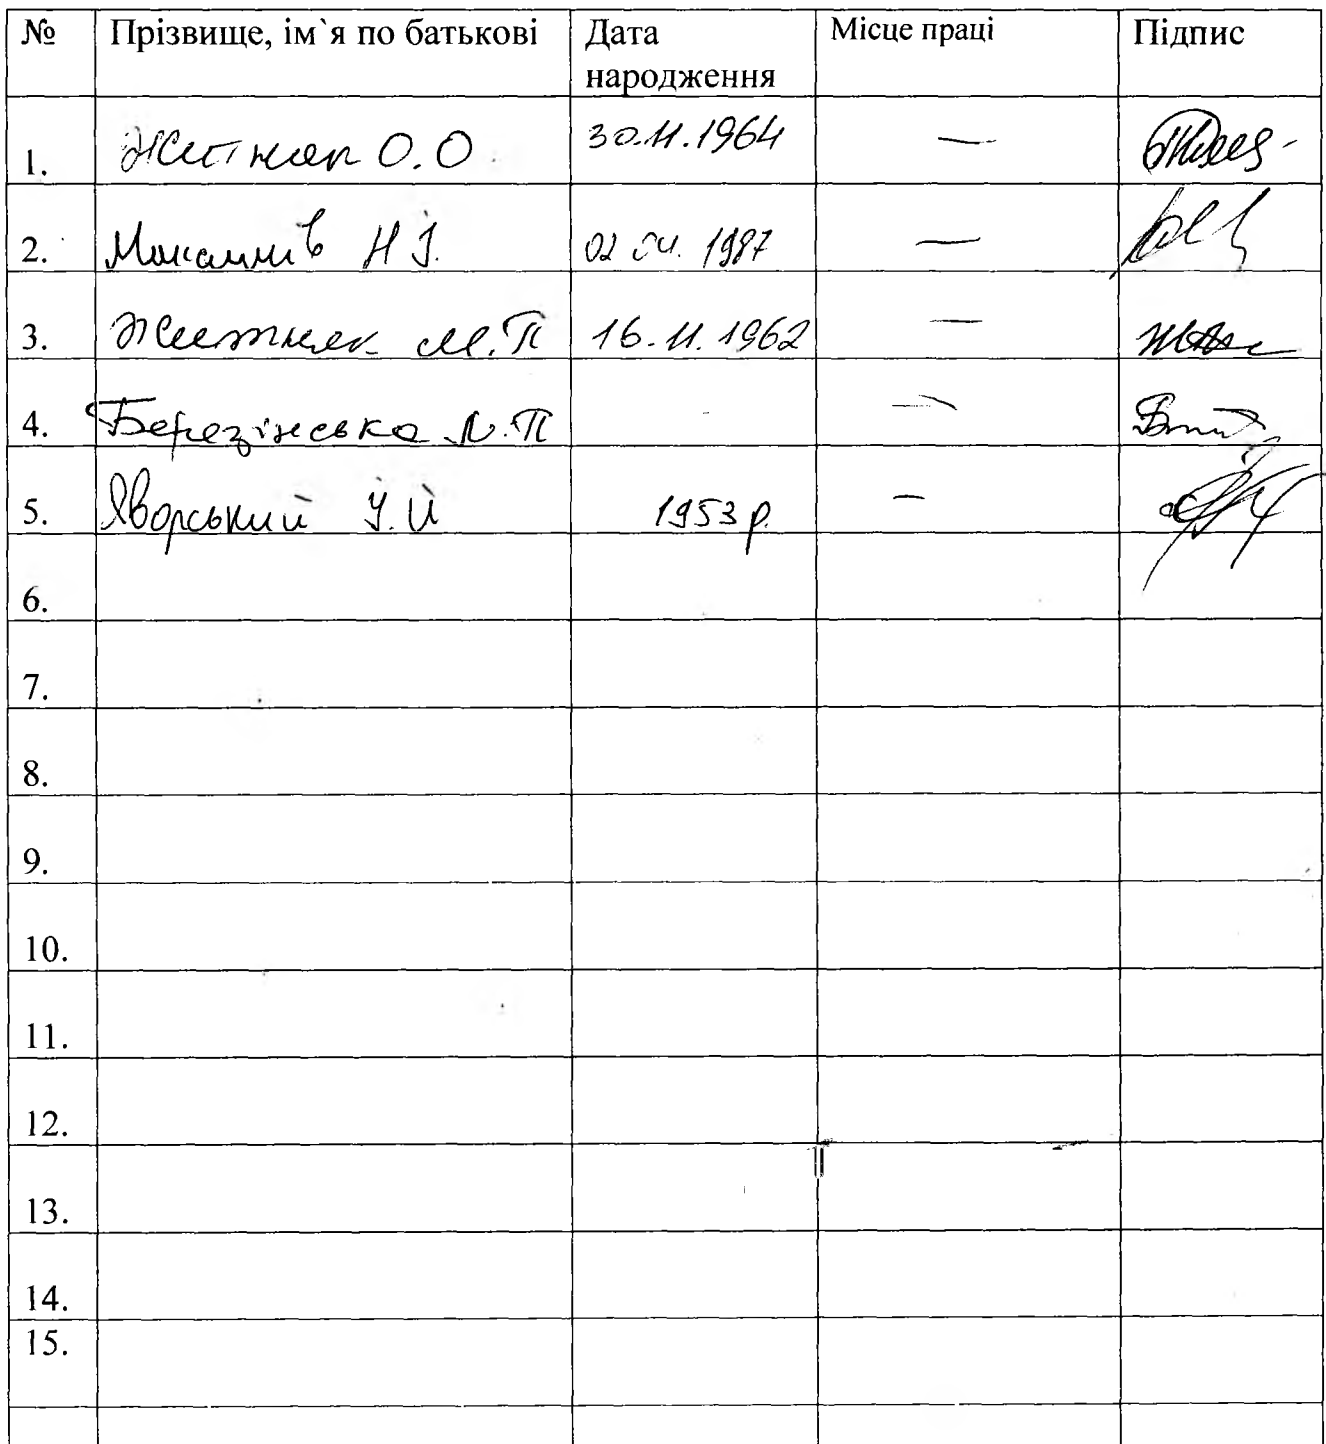 № Прізвище, ім`я по батькові Дата народження Місце праці Підпис
1. Житняк О.О 30.11.1964 —
2. Н І. 02 04. 1987 —
3. Житняк М.П 16.11.1962 —
4. Березінська П —
5. Яворський Й 1953 р. —
6.
7.
8.
9.
10.
11.
12.
13.
14.
15.